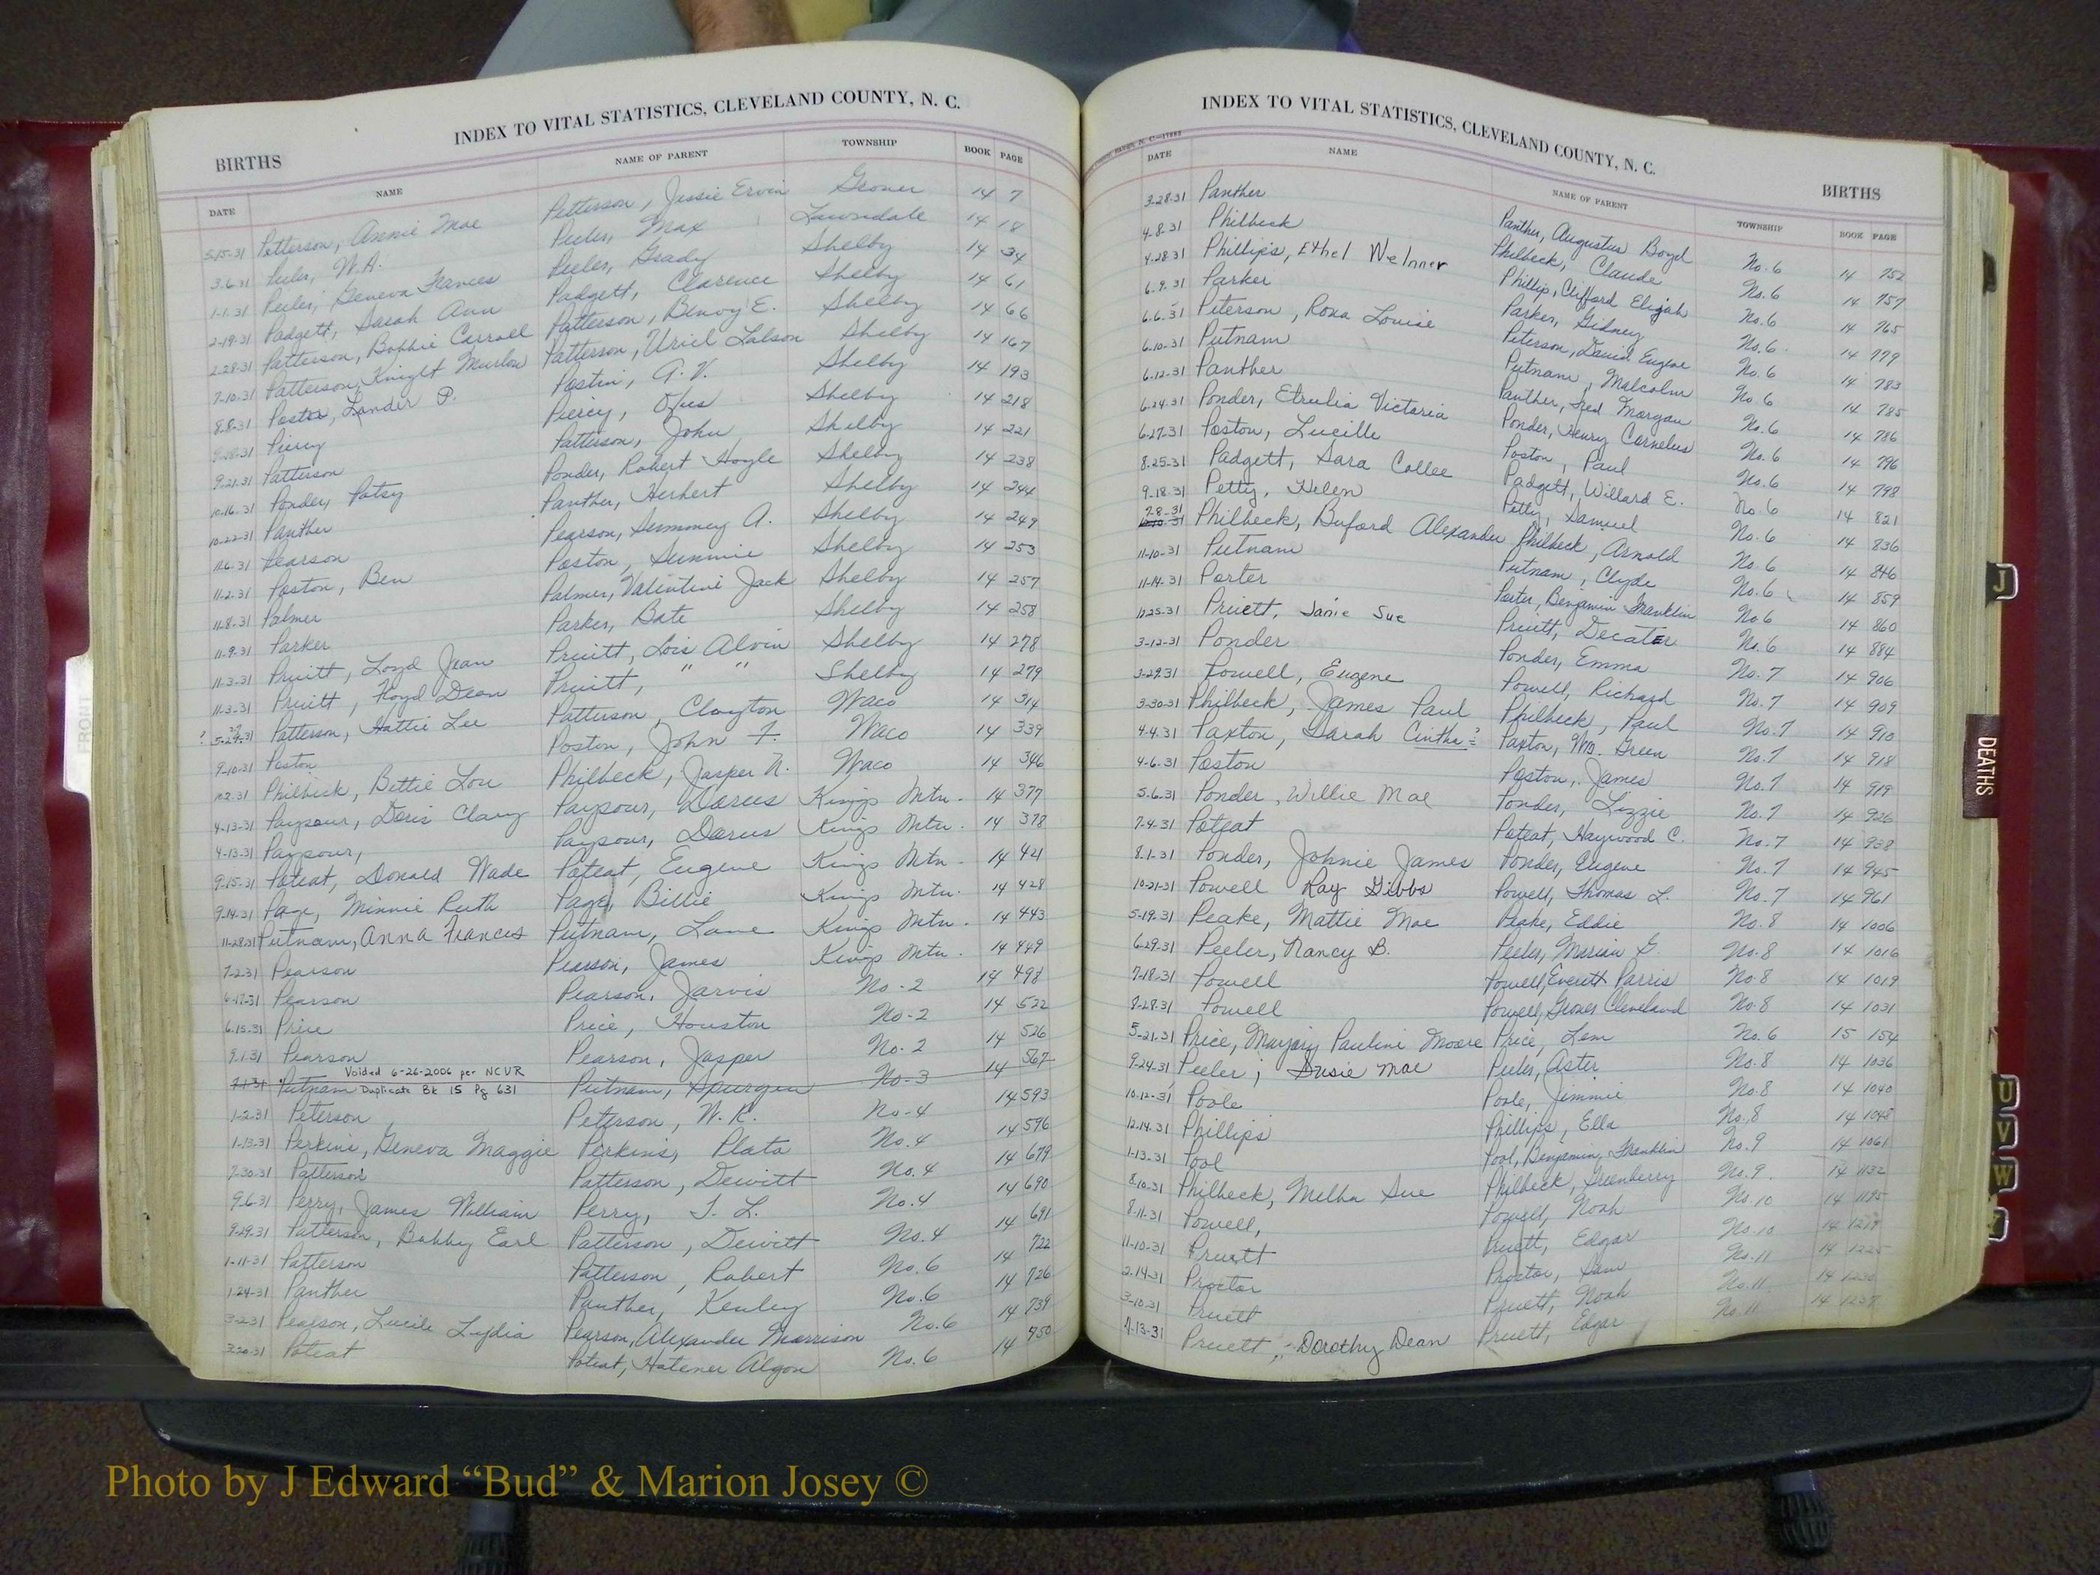 INDEX TO VITAL STATISTICS, CLEVELAND COUNTY, N. C.
BIRTHS
DATE NAME NAME OF PARENT TOWNSHIP BOOK PAGE
5-15-31 Petterson, Annie Mae Petterson, Jessie Ervin Grover 14 7
3-6-31 Peeler, W.A. Peeler, Max Lawndale 14 18
1-1-31 Peeler, Geneva Frances Peeler, Grady Shelby 14 34
2-19-31 Padgett, Sarah Ann Padgett, Clarence Shelby 14 61
2-28-31 Patterson, Bobbie Carroll Patterson, Benoy E. Shelby 14 66
7-10-31 Patterson, Knight Murlow Patterson, Uriel Lalson Shelby 14 167
8-8-31 Poston, Lander P. Postin, A. V. Shelby 14 193
Piercy Piercy, Shelby 14 218
9-21-31 Patterson Patterson, John Shelby 14 221
10-16-31 Ponder, Patsy Ponder, Robert Hoyle Shelby 14 238
10-22-31 Panther Panther, Herbert Shelby 14 244
11-6-31 Pearson Pearson, Summey A. Shelby 14 249
11-2-31 Poston, Ben Poston, Summie Shelby 14 253
11-8-31 Palmer Palmer, Valintine Jack Shelby 14 257
11-9-31 Parker Parker, Bate Shelby 14 258
11-3-31 Pruitt, Loyd Jean Pruitt, Lois Alvin Shelby 14 278
11-3-31 Pruitt, Floyd Dean Pruitt, " " Shelby 14 279
? 5-29-31 Patterson, Hattie Lee Patterson, Clayton Waco 14 314
9-10-31 Poston Poston, John F. Waco 14 339
10-2-31 Philbeck, Bettie Lou Philbeck, Jasper N. Waco 14 346
4-13-31 Paysour, Doris Clary Paysour, Darus Kings Mtn. 14 377
4-13-31 Paysour, Paysour, Darus Kings Mtn. 14 378
9-15-31 Poteat, Donald Wade Poteat, Eugene Kings Mtn. 14 421
9-14-31 Page, Minnie Ruth Page, Billie Kings Mtn. 14 428
11-28-31 Putnam, Anna Frances Putnam, Lane Kings Mtn. 14 443
7-2-31 Pearson Pearson, James Kings Mtn. 14 449
6-17-31 Pearson Pearson, Jarvis No-2 14 498
6-15-31 Price Price, Houston No-2 14 522
9-1-31 Pearson Pearson, Jasper No-2 14 526
Voided 6-26-2006 per NCVR
7-1-31 Putnam Duplicate Bk 15 Pg 631 Putnam, Spurgeon No-3 14 567
1-2-31 Peterson Peterson, W. K. No-4 14 593
1-13-31 Perkins, Geneva Maggie Perkins, Plato No.4 14 596
7-30-31 Patterson Patterson, Dewitt No.4 14 679
9-6-31 Perry, James William Perry, T. L. No.4 14 690
9-29-31 Patterson, Bobby Earl Patterson, Dewitt No.4 14 691
1-11-31 Patterson Patterson, Robert No.6 14 722
1-24-31 Panther Panther, Kenley No.6 14 726
3-2-31 Pearson, Lucile Lydia Pearson, Alexander Marrison No.6 14 739
3-20-31 Poteat Poteat, Hatener Algon No.6 14 750
INDEX TO VITAL STATISTICS, CLEVELAND COUNTY, N. C.
BIRTHS
DATE NAME NAME OF PARENT TOWNSHIP BOOK PAGE
3-28-31 Panther Panther, Augustus Boyd No.6 14 752
4-8-31 Philbeck Philbeck, Claude No.6 14 757
4-28-31 Phillips, Ethel Welnner Phillip, Clifford Elijah No.6 14 765
6-9-31 Parker Parker, Gidney No.6 14 779
6-6-31 Peterson, Rosa Louise Peterson, David Eugene No.6 14 783
6-10-31 Putnam Putnam, Malcolm No 6 14 785
6-12-31 Panther Panther, Fred Morgan No.6 14 786
6-24-31 Ponder, Etrulia Victoria Ponder, Henry Cornelius No.6 14 796
6-27-31 Poston, Lucille Poston, Paul No.6 14 798
8-25-31 Padgett, Sara Collee Padgett, Willard E. No 6 14 821
9-18-31 Petty, Helen Petty, Samuel No.6 14 836
7-8-31 Philbeck, Buford Alexander Philbeck, Arnold No.6 14 846
11-10-31 Putnam Putnam, Clyde No.6 14 859
11-14-31 Porter Porter, Benjamin Franklin No 6 14 860
12-25-31 Pruett, Janie Sue Pruett, Decater No.6 14 884
3-12-31 Ponder Ponder, Emma No.7 14 906
3-29-31 Powell, Eugene Powell, Richard No.7 14 909
3-30-31 Philbeck, James Paul Philbeck, Paul No.7 14 910
4-4-31 Paxton, Sarah Cintha ? Paxton, Wm. Green No.7 14 918
4-6-31 Poston Poston, James No.7 14 919
5-6-31 Ponder, Willie Mae Ponder, Lizzie No.7 14 926
7-4-31 Poteat Poteat, Haywood C. No.7 14 938
8-1-31 Ponder, Johnie James Ponder, Eugene No.7 14 945
10-21-31 Powell Ray Gibbs Powell, Thomas L. No.7 14 961
5-19-31 Peake, Mattie Mae Peake, Eddie No.8 14 1006
6-29-31 Peeler, Nancy B. Peeler, Marian G. No.8 14 1016
7-18-31 Powell Powell, Everett Parris No.8 14 1019
8-28-31 Powell Powell, Grover Cleveland No.8 14 1031
5-21-31 Price, Marjory Paulini Moore Price, Lem No.6 15 154
9-24-31 Peeler; Susie Mae Peeler, Aster No.8 14 1036
10-12-31 Poole Poole, Jimmie No.8 14 1040
12-14-31 Phillips Phillips, Ella No.8 14 1048
1-13-31 Pool Pool, Benjamin Franklin No.9 14 1061
8-10-31 Philbeck, Melba Sue Philbeck, Greenberry No.9 14 1132
8-11-31 Powell, Powell, Noah No.10 14 1195
11-10-31 Pruett Pruett, Edgar No.10 14 1219
2-14-31 Proctor Proctor, Sam No.11 14 1225
3-10-31 Pruett Pruett, Noah No.11 14 1230
4-13-31 Pruett, Dorothy Dean Pruett, Edgar No.11 14 1237
FRONT
J
DEATHS
U
V
W
Photo by J Edward “Bud” & Marion Josey ©